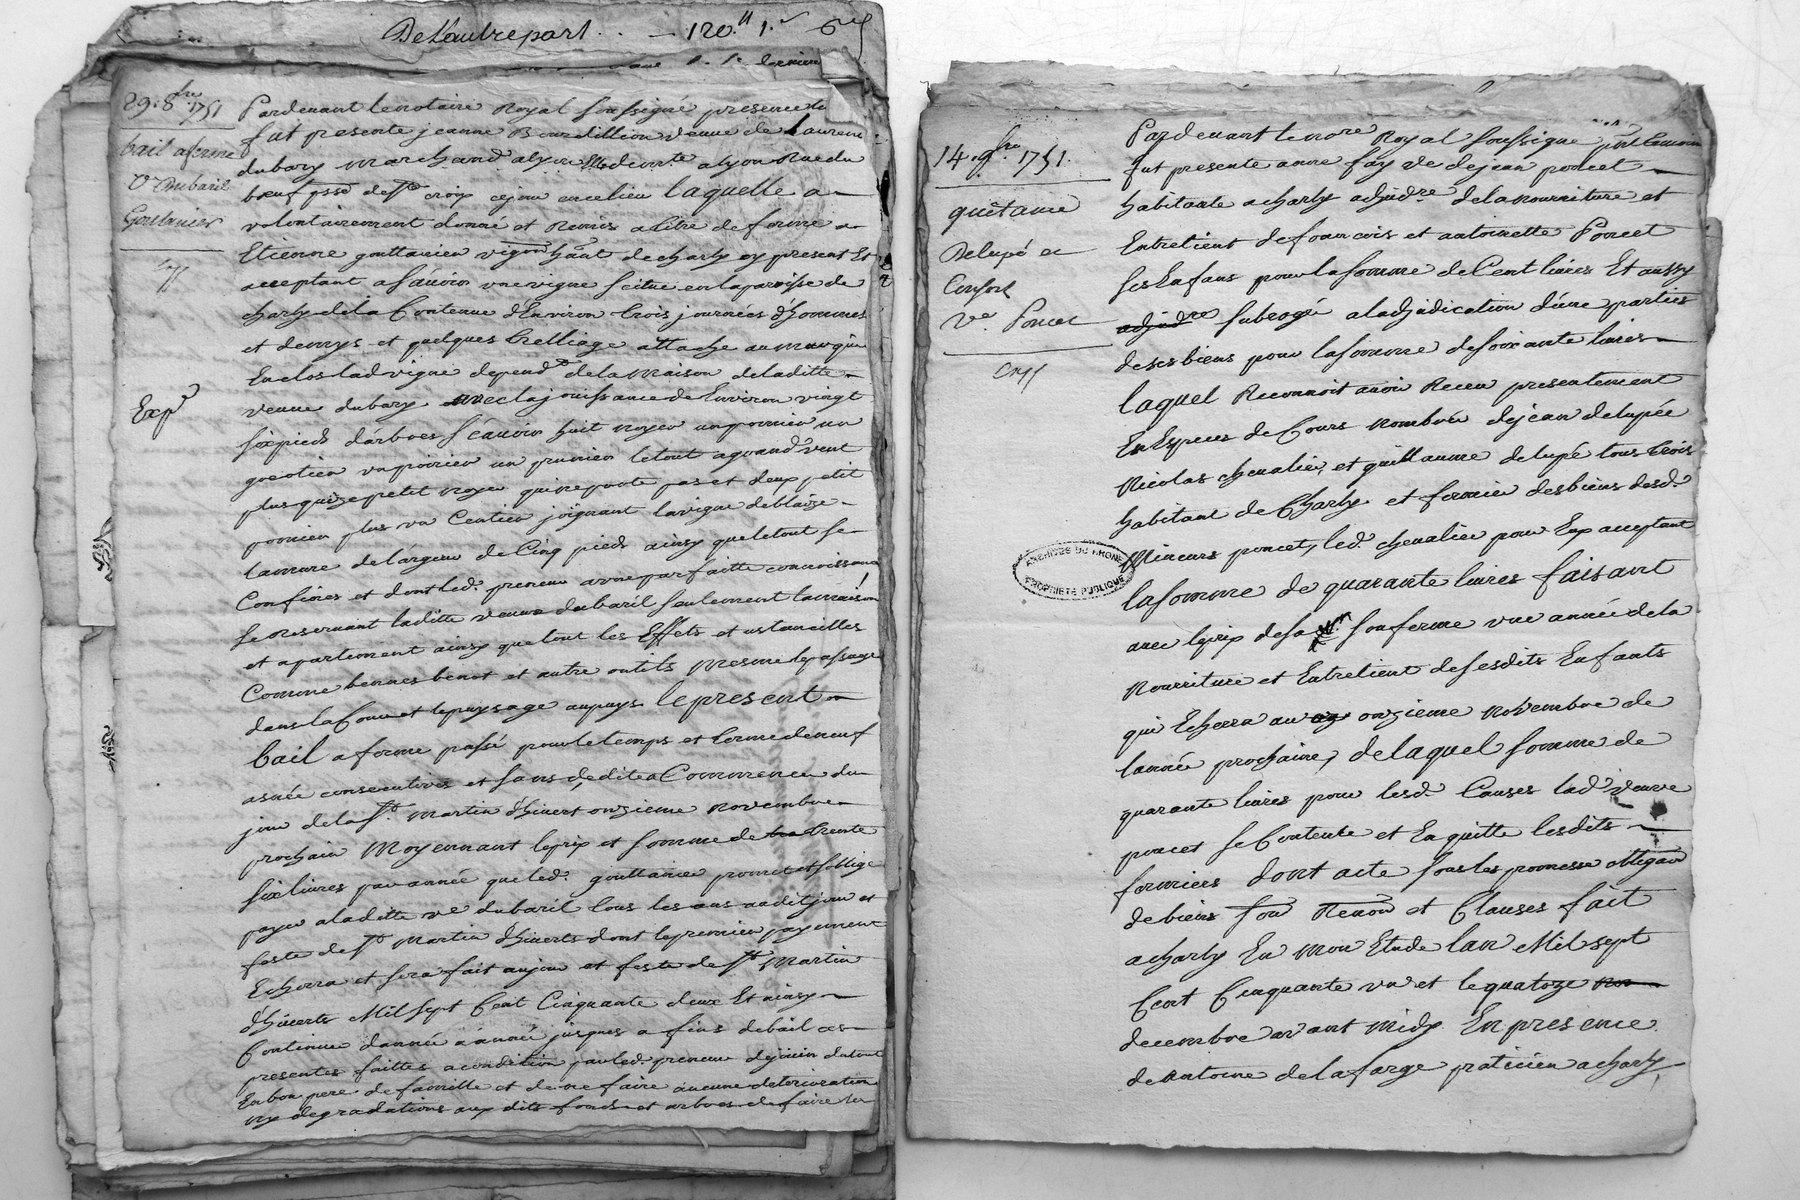 De l'autre part . . — 120.ll 1.s 6d
29. 8bre 1751
bail a ferme
Ve Dubaril
Gouttanier
Exp.
Pardevant le notaire Royal soussigné presence de
fut presente jeanne Bourdillion veuve de Laurent
dubary marchand a lyon
bœuf psse de Ste croix ce jour en ce lieu laquelle a
volontairement donné et Remis a titre de ferme a
Etienne gouttanier vigneron hant de charly cy present Et
acceptant a sçavoir une vigne scitue en la paroisse de
charly de la Contenue d'Environ trois journées d'hommes
et demys et quelques trelliage attache au
Enclos lad vigne depend.te de la maison de la ditte
veuve dubary avec la jouissance de Environ vingt
six pieds d'arbres sçavoir huit noyer un pomier un
un poirier un prunier le tout a grand vent
plus petit noyer qui ne porte pas et deux petit
pomier plus un Centier joignant la vigne de blaize
lamure de largeur de Cinq pieds ainsy que le tout se
Confines et dont led. preneur a une parfaitte connoissance
se Reservant laditte veuve dubaril seulement la maison
et apartement ainsy que tout les Effets et ustancilles
Comme bennes benot et autre outils mesme le passage
dans la Cour et le puysage au puys le present
bail a ferme passé pour le temps et terme de neuf
année consecutives et sans dedite a Commencer du
jour de la St. Martin d'hivert onzieme novembre
prochain Moyennant le prix et somme de trente
six livres par année que led. gouttanier promet et s'oblige
payer a laditte ve dubaril tous les ans audit jour et
feste de St Martin d'hiverts dont le premier payement
Echerra et sera fait au jour et feste de St Martin
d'hiverts Mil sept Cent Cinquante deux Et ainsy
Continuer d'année a année jusques a fins de bail ces
presentes faittes a condition par led. preneur de jouir du tout
En bon pere de famille et de ne faire aucune deterioration
ny degradations aux dits fonds et arbres de faire les
14. 9bre 1751.
quittance
Delupé et
Consort
Ve. Poncet
Pardevant le nore Royal soussigné
fut presente anne fay ve de jean poncet
habitante a charly adjudre. de la nourriture et
Entretient de francois et antoinette Poncet
ses Enfans pour la somme de Cent livres Et aussy
adjudre subrogé a l'adjudication d'une parties
de ses biens pour la somme de soixante livres
laquel Reconnoit avoir Receu presentement
En Especes de Cours nombrée de jean delupée
Nicolas chevalier, et guillaume delupé tous trois
habitant de Charly et fermier des biens desd.
Mineurs poncet, led. chevalier pour Eux acceptant
ARCHIVES DU RHONE
PROPRIETE PUBLIQUE
la somme de quarante livres faisant
avec le prix de sa son ferme une année de la
nourriture et Entretient de ses dits Enfants
qui Echerra au onzieme Novembre de
lannée prochaine, de laquel somme de
quarante livres pour lesd. Causes lad. veuve
poncet se Contente et En quitte lesdits
fermiers dont acte sous les promesse obligaon
de biens sou Renon et Clauses fait
a charly En mon Etude l'an Mil sept
Cent Cinquante un et le quatoze
decembre avant midy En presence
de antoine delafarge praticien a charly